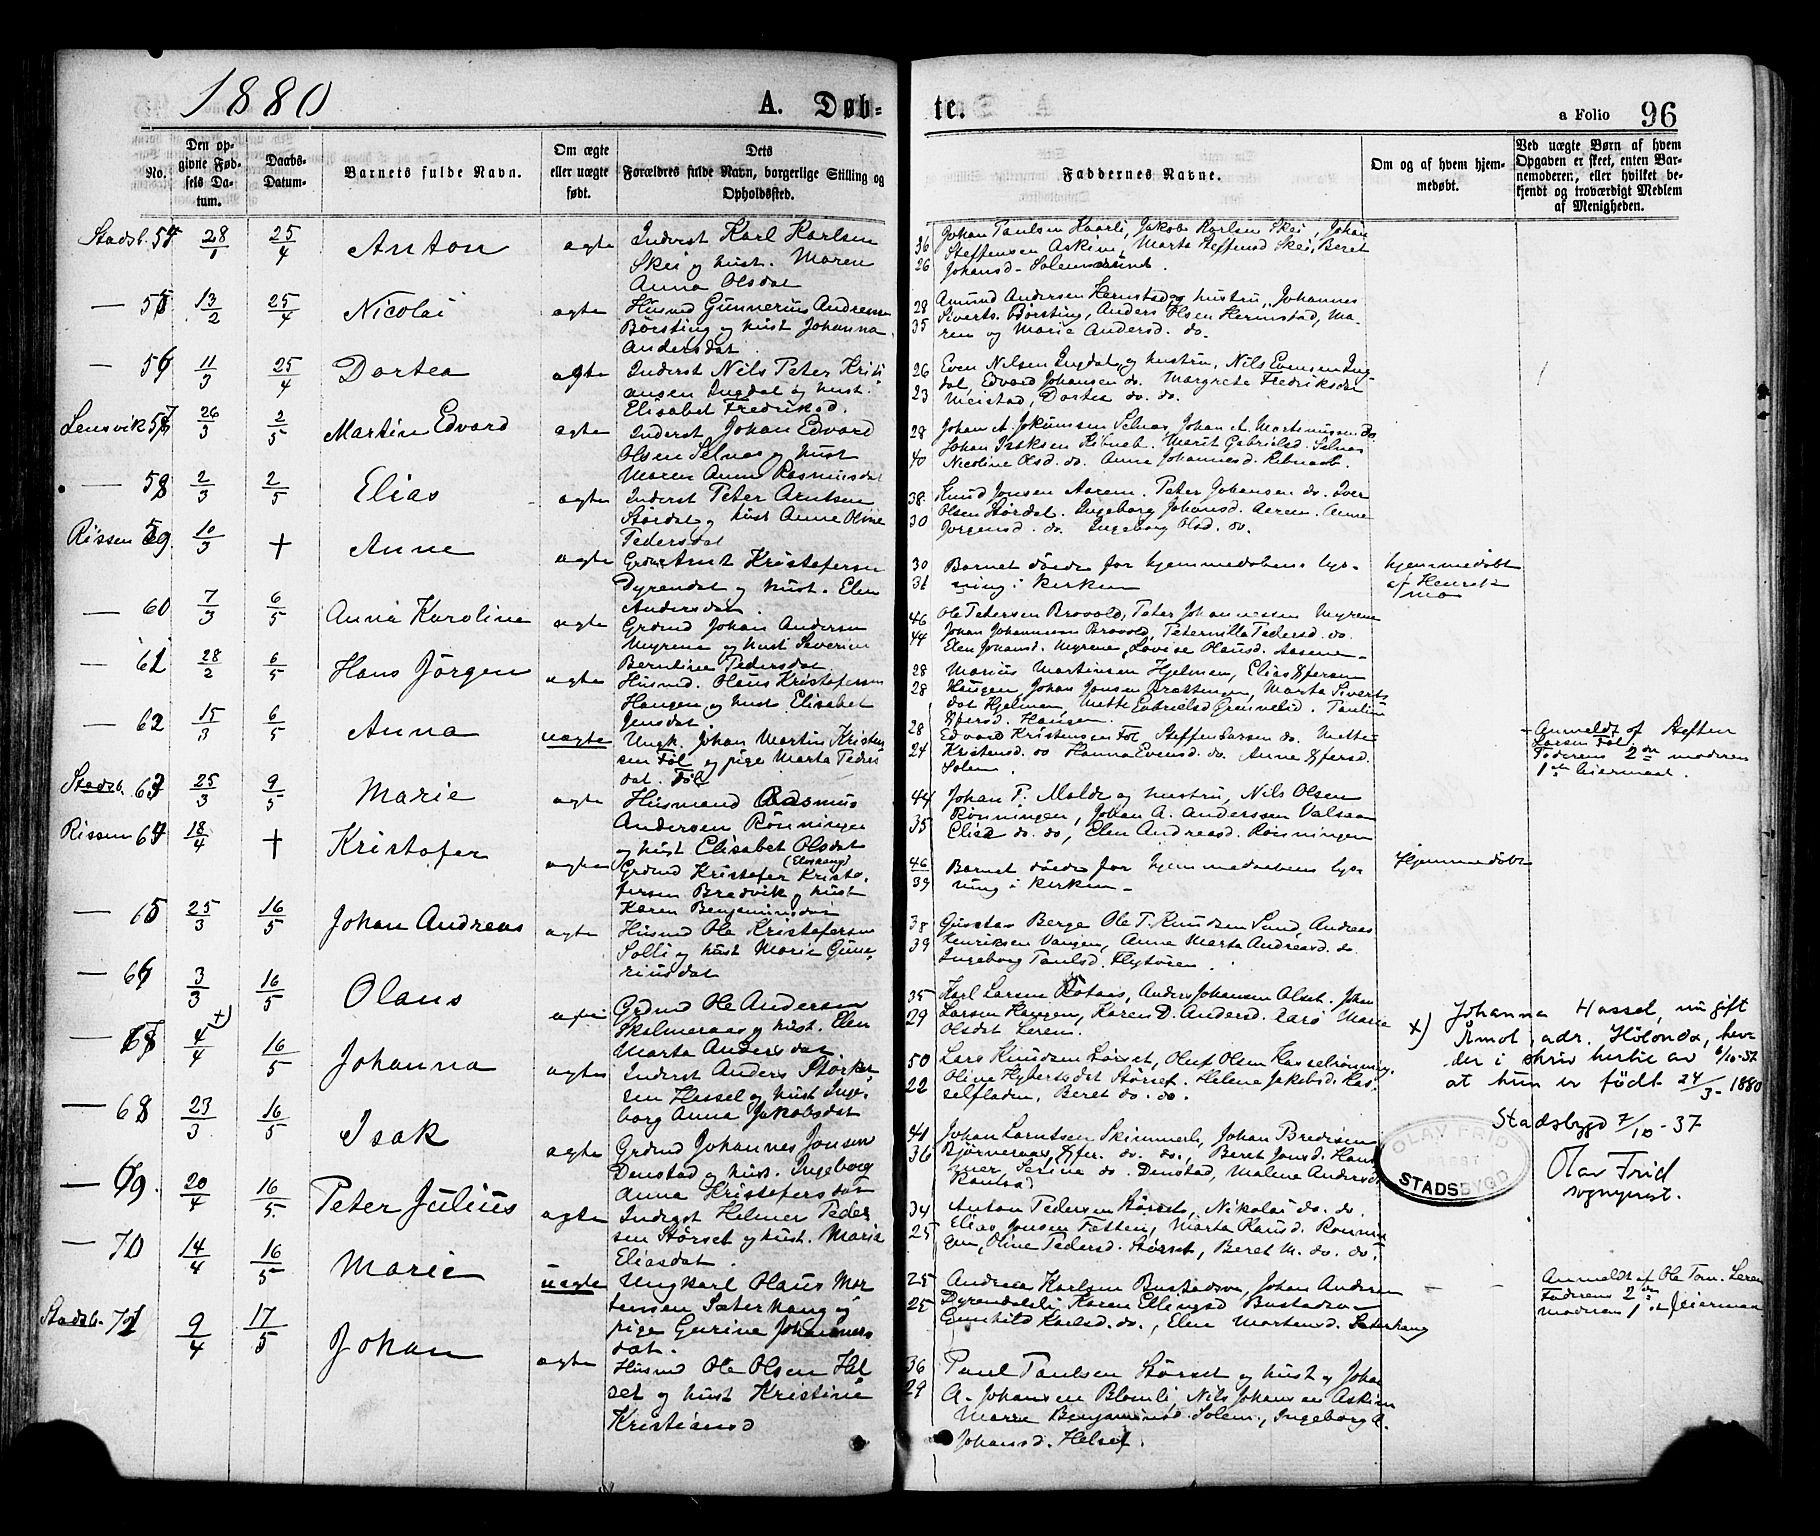 1880
A. Døb-
te.
a Folio 96
No.
Den op-
givne Fød-
sels Da-
tum.
Daabs-
Datum.
Barnets fulde Navn.
Om ægte
eller uægte
født.
Dets
Forældres fulde Navn, borgerlige Stilling og
Opholdssted.
Faddernes Navne.
Om og af hvem hjem-
medøbt.
Ved uægte Børn af hvem
Opgaven er skeet, enten Bar-
nemoderen, eller hvilket be-
kjendt og troværdigt Medlem
af Menigheden.
Stadsb. 54 28/1 25/4 Anton ægte
Inderst Karl Karlsen
Skei og hust. Maren
Anna Olsdat
36
26
Johan Paulsen Haarli, Jakob Karlsen Skei, Johan
Steffensen Askim, Marta Steffensd Skei, Beret
Johansd
— 55 13/2 25/4 Nicolai ægte
Husmd Gunnerius Andreas
Børsting og hust Johanna
Andersdat
28
35
Amund Andersen Hermstad og hustru, Johannes
Siverts. Børsting, Anders Olsen Hermstad, Ma-
ren og Marie Andersd. do.
— 56 11/3 25/4 Dortea ægte
Inderst Nils Peter Kristi
ansen Ingdal og hust.
Elisabet Fredriksd.
26
23
Even Nilsen Ingdal og hustru, Nils Evensen Ing-
dal, Edvard Johansen do. Margrete Fredriksd
Meistad, Dortea do. do.
Lensvik 57 26/3 2/5 Martin Edvard ægte
Inderst Johan Edvard
Olsen Selnæs og hust
Maren Anna Rasmusdat
28
40
Johan A. Selnæs Johan A. Martinussen do
Johan Isaksen Ribnab. Marit Gabrielsd. Selnæs
Nicoline Olsd. do. Anna Johannesd. Ribnaab.
— 58 2/3 2/5 Elias ægte
Inderst Peter Arntsen
Størdal og hust Anne Oline
Pedersdat
38
30
Knud Jonsen Aarem. Peter Johansen do. Iver
Olsen Størdal. Ingeborg Johansd. Aerem. Anne
Jørgensd. do. Ingeborg Olsd. do.
Rissen 59. 10/3 + Anne ægte
Grdm Arnt Kristofersen
Dyrendal og hust. Elen
Andersdat.
30
31
Barnet døde før hjemmedøbens lys-
ning i kirken
hjemmedøbt
af Henrik
Moe
— 60 7/3 6/5 Anna Karoline ægte
Grdmd Johan Andersen
Myrene og hust Severine
Berntine Pedersdat.
46
44
Ole Petersen Brovold, Peter Johannessen Myrene
Johan Johannesen Brovold, Peternilla Pedersd. do.
Elen Johansd. Myrene, Lovise Olausd. Aasene
— 61 28/2 6/5 Hans Jørgen ægte
Husmd. Olaus Kristofersen
Haugen og hust Elisabet
Jensdat.
28
28
Marius Martinsen Hjelmen, Elias Kfersen
Haugen, Johan Jonsen Brattingen, Marta Siverts
dat Hjelmen, Mette Gabrielsd
Kfersd. Haugen.
— 62 15/3 6/5 Anna uægte
Ungk. Johan Martin Kristen
sen Føl og pige Marta Peders
dat. Føl
28
24
Edvard Kristensen Føl Steffen Larsen do. Mette
Kristensd. do Hanna Evensd. do. Anne Kfersd.
Solem.
Anmeldt af Steffen
Larsen Føl,
Faderens 2den moderens
1ste leiermaal.
Stadsb. 63 25/3 9/5 Marie ægte
Husmand Rasmus
Andersen Rønningen
og hust Elisabet Olsdat
44
35
Johan P. Molde og hustru, Nils Olsen
Rønningen, Johan A. Anderssen Valsaa
Elisa do. do, Elen Andreasd. Rønningen
Rissen 64 18/4 + Kristofer ægte
Grdmd Kristofer Kristo-
fersen Bredvik og hust
Karen Benjaminsdat
46
39
Barnet døde før hjemmedøbens lys-
ning i kirken
Hjemmedøbt
— 65 25/3 16/5 Johan Andreas ægte
Husmd Ole Kristofersen
Solli og hust Marie Gune-
riusdat
38
39
Gustav Berge Ole T. Knudsen Sund, Andreas
Henriksen Vangen, Anne Marta Andreasd. do
Ingeborg Paulsd.
— 66 3/3 16/5 Olaus
Grdmd Ole Andersen
Skelmeraas og hust. Elen
Marta Andersdat.
35
29
Karl Larsen Rotaas, Anders Johansen Olset. Johan
Larsen Haugen, Karen D. Andersd. Aarø Marie
Olsdat Leren.
— 67 4/4 x) 16/5 Johanna ægte
Inderst Anders Størker
sen Hassel og hust Inge-
borg Anna Jakobsdat
50
22
Lars Knudsen Størset, Oluf Olsen Hasselrønning,
Oline Størset. Helene Jakobsd. Has
selfladen, Beret do. do.
x)
Johanna Hassel, nu gift
Åmot, adr. Hölonda, hev-
der i skriv hertil av 6/10-37
at hun er født 24/3-1880
Stadsbygd 7/10-37
Olav Frid
sogneprest.
OLAV FRID
STADSBYGD
— 68 23/3 16/5 Isak ægte
Grdmd Johannes Jonsen
Denstad og hust. Ingeborg
Anna Kristofersdat
41
36
Johan Larntsen Skimmeli, Johan Bredesen
Bjørneraas, Kfer. do. do., Beret Jonsd. Ham
mer, Serina do. Denstad, Malene Andersd.
— 69. 20/4 16/5. Peter Julius ægte
Inderst Helmer Peder
sen Størset og hust. Maria
Eliasdat.
34
25
Anton Pedersen Størset, Nikolai do. do.
Elias Jonsen Fætten, Marta Knusd. Rønnin
gen, Oline Pedersd. Størset, Beret M. do. do.
— 70 14/4 16/5 Marie uægte
Ungkarl Olaus Mor
tensen Sæterhaug og
pige Gurine Johannes
dat.
25
25
Andreas Karlsen Bustadsva Johan Andersen
Dyrendalsli, Karen Ellingsd Bustadsva
Gunhild Karlsd. do., Elen Mortensd. Sæterhaug
Anmeldt af Ole Tom. Leren
Faderens 2den
Moderens 1ste leiermaal
Stadsb. 71 9/4 17/5 Johan ægte
Husmd Ole Olsen Hel
set og hust Kristine
Kristiansd
36
29
Paul Paulsen Størset og hust og Johan
A. Johansen Blomli, Nils Johansen Askim
Marra Benjaminsd. Solem, Ingeborg A.
Johansd. Helset.